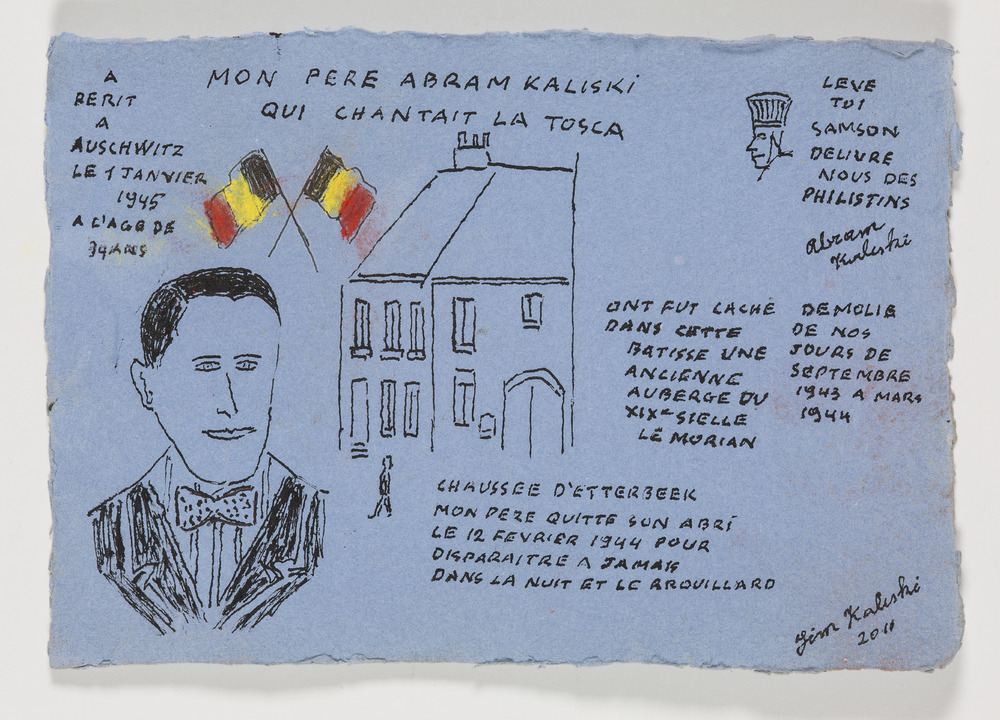 MON PERE ABRAM KALISKI
QUI CHANTAIT LA TOSCA
A
PERIT
A
AUSCHWITZ
LE 1 JANVIER
1945
A L'AGE DE
34 ANS
LEVE
TOI
SAMSON
DELIVRE
NOUS DES
PHILISTINS
Abram
Kaliski
ONT FUT CACHÉ
DANS CETTE
BATISSE UNE
ANCIENNE
AUBERGE DU
XIXe SIELLE
LE MORIAN
DEMOLIE
DE NOS
JOURS DE
SEPTEMBRE
1943 A MARS
1944
CHAUSSEE D'ETTERBEEK
MON PERE QUITTE SON ABRI
LE 12 FEVRIER 1944 POUR
DISPARAITRE A JAMAIS
DANS LA NUIT ET LE BROUILLARD
Jim Kaliski
2011